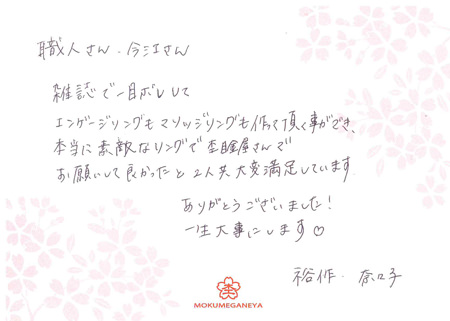 職人さん、今江さん
雑誌で一目ボレして
エンゲージリングもマリッジリングも作って頂く事ができ、
本当に素敵なリングで杢目金屋さんで
お願いして良かったと2人共大変満足しています
ありがとうございました!
一生大事にします♡
裕作・奈々子
MOKUMEGANEYA